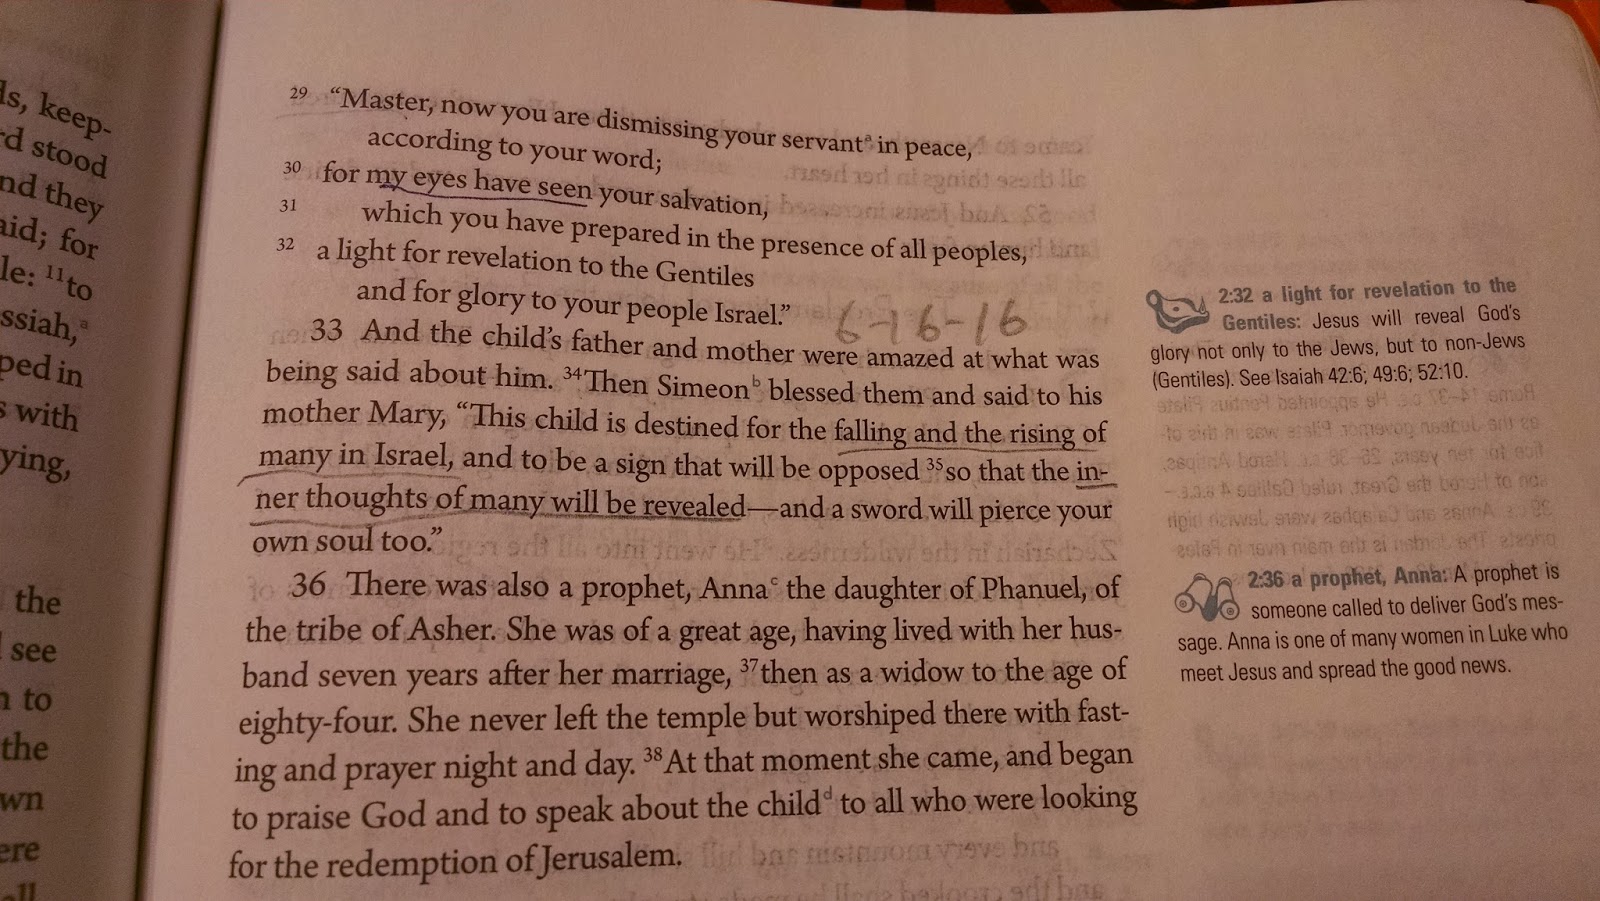 ds, keep-
rd stood
nd they
aid; for
le: 11to
ssiah,a
ped in
s with
ying,
the
see
n to
the
wn
ere
all
29 “Master, now you are dismissing your servanta in peace,
according to your word;
30 for my eyes have seen your salvation,
31 which you have prepared in the presence of all peoples,
32 a light for revelation to the Gentiles
and for glory to your people Israel.”
6-16-16
33 And the child’s father and mother were amazed at what was
being said about him. 34Then Simeonb blessed them and said to his
mother Mary, “This child is destined for the falling and the rising of
many in Israel, and to be a sign that will be opposed 35so that the in-
ner thoughts of many will be revealed—and a sword will pierce your
own soul too.”
36 There was also a prophet, Annac the daughter of Phanuel, of
the tribe of Asher. She was of a great age, having lived with her hus-
band seven years after her marriage, 37then as a widow to the age of
eighty-four. She never left the temple but worshiped there with fast-
ing and prayer night and day. 38At that moment she came, and began
to praise God and to speak about the childd to all who were looking
for the redemption of Jerusalem.
2:32 a light for revelation to the
Gentiles: Jesus will reveal God’s
glory not only to the Jews, but to non-Jews
(Gentiles). See Isaiah 42:6; 49:6; 52:10.
2:36 a prophet, Anna: A prophet is
someone called to deliver God’s mes-
sage. Anna is one of many women in Luke who
meet Jesus and spread the good news.